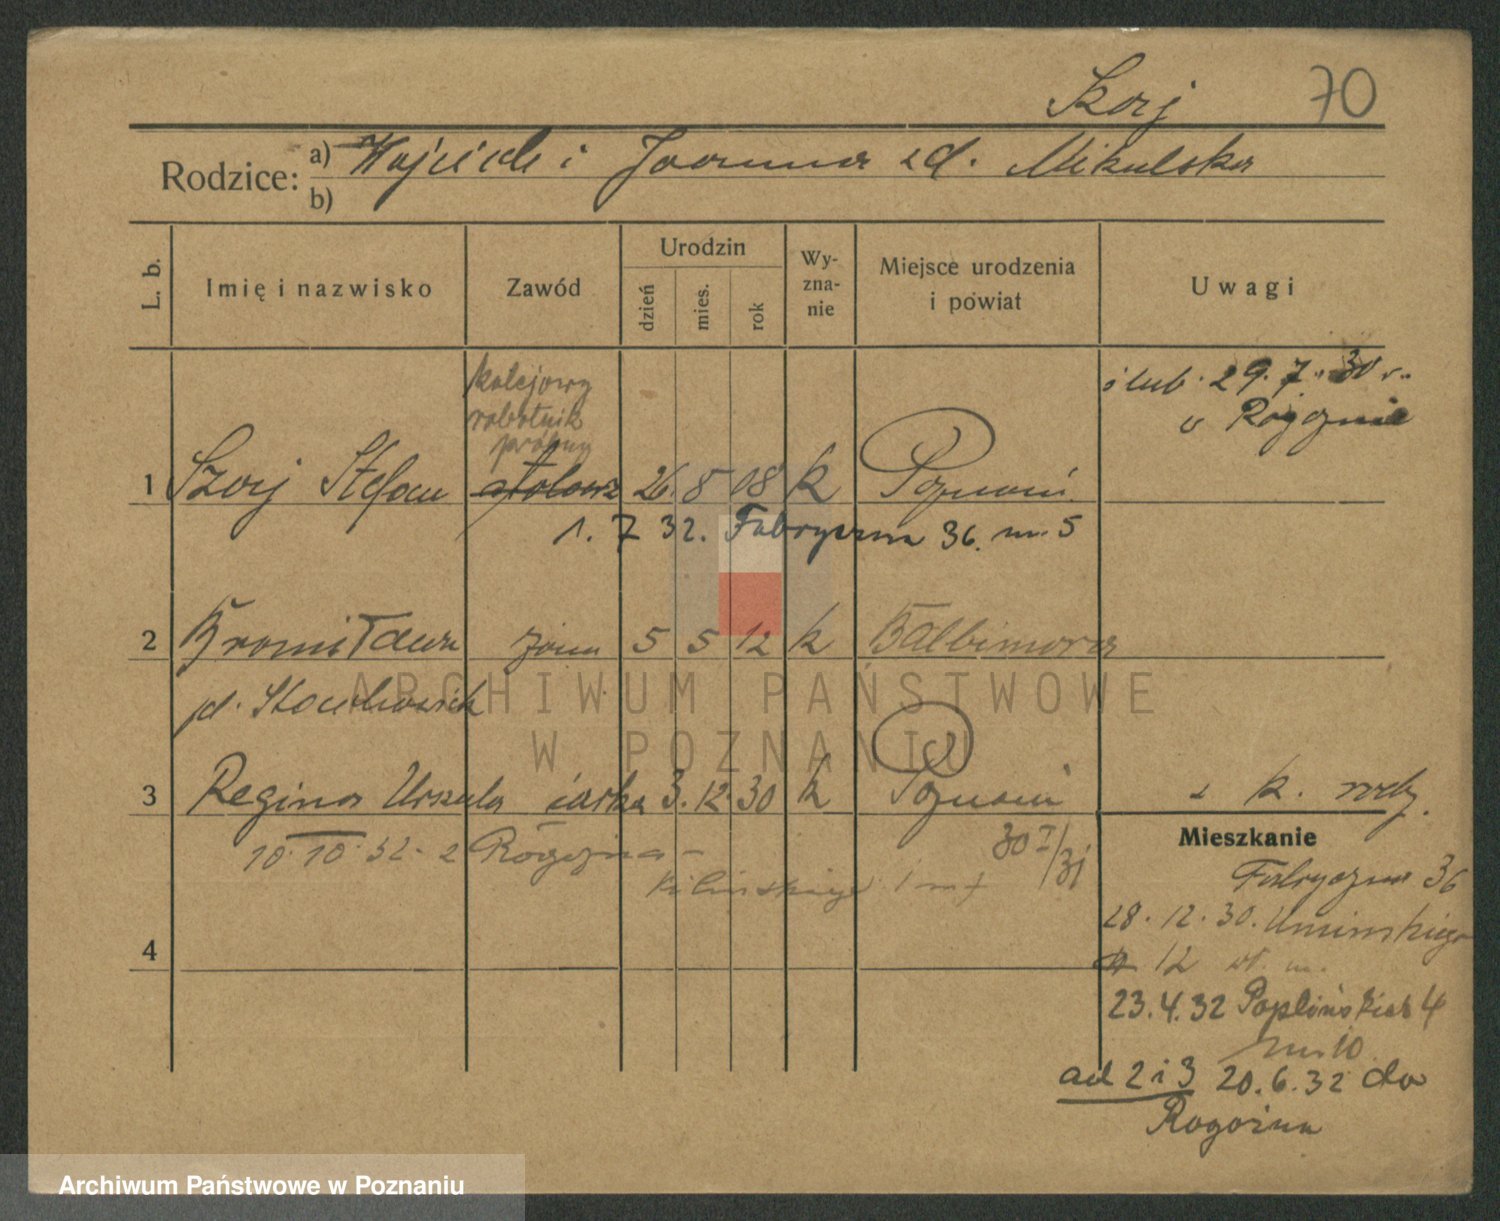 Szorj 70
Rodzice: a) Wojciech i Joanna zd. Mikulska
b)
L. b. Imię i nazwisko Zawód Urodzin dzień mies. rok Wy-zna-nie Miejsce urodzenia i powiat Uwagi
kolejowy
robotnik
próbny
ślub. 29. 7. 30 r.
w Rogoźnie
1 Szorj Stefan stolarz 26. 8 08 k Poznań
1. 7 32. Fabryczna 36. m. 5
2 Bronisława żona 5 5 12 k Baltimora
zd. Stachowiak
3 Regina Urszula córka 3. 12. 30 k Poznań z k. rodz.
10. 10. 32. z Rogoźna –
Kilińskiego 1 m 7
30 I/31
4
Mieszkanie
Fabryczna 36
28. 12. 30. Umińskiego
12 m.
23.4.32 Poplińskich 4
m. 10
ad 2 i 3 20. 6. 32 do
Rogoźna
ARCHIWUM PAŃSTWOWE
W POZNANIU
Archiwum Państwowe w Poznaniu